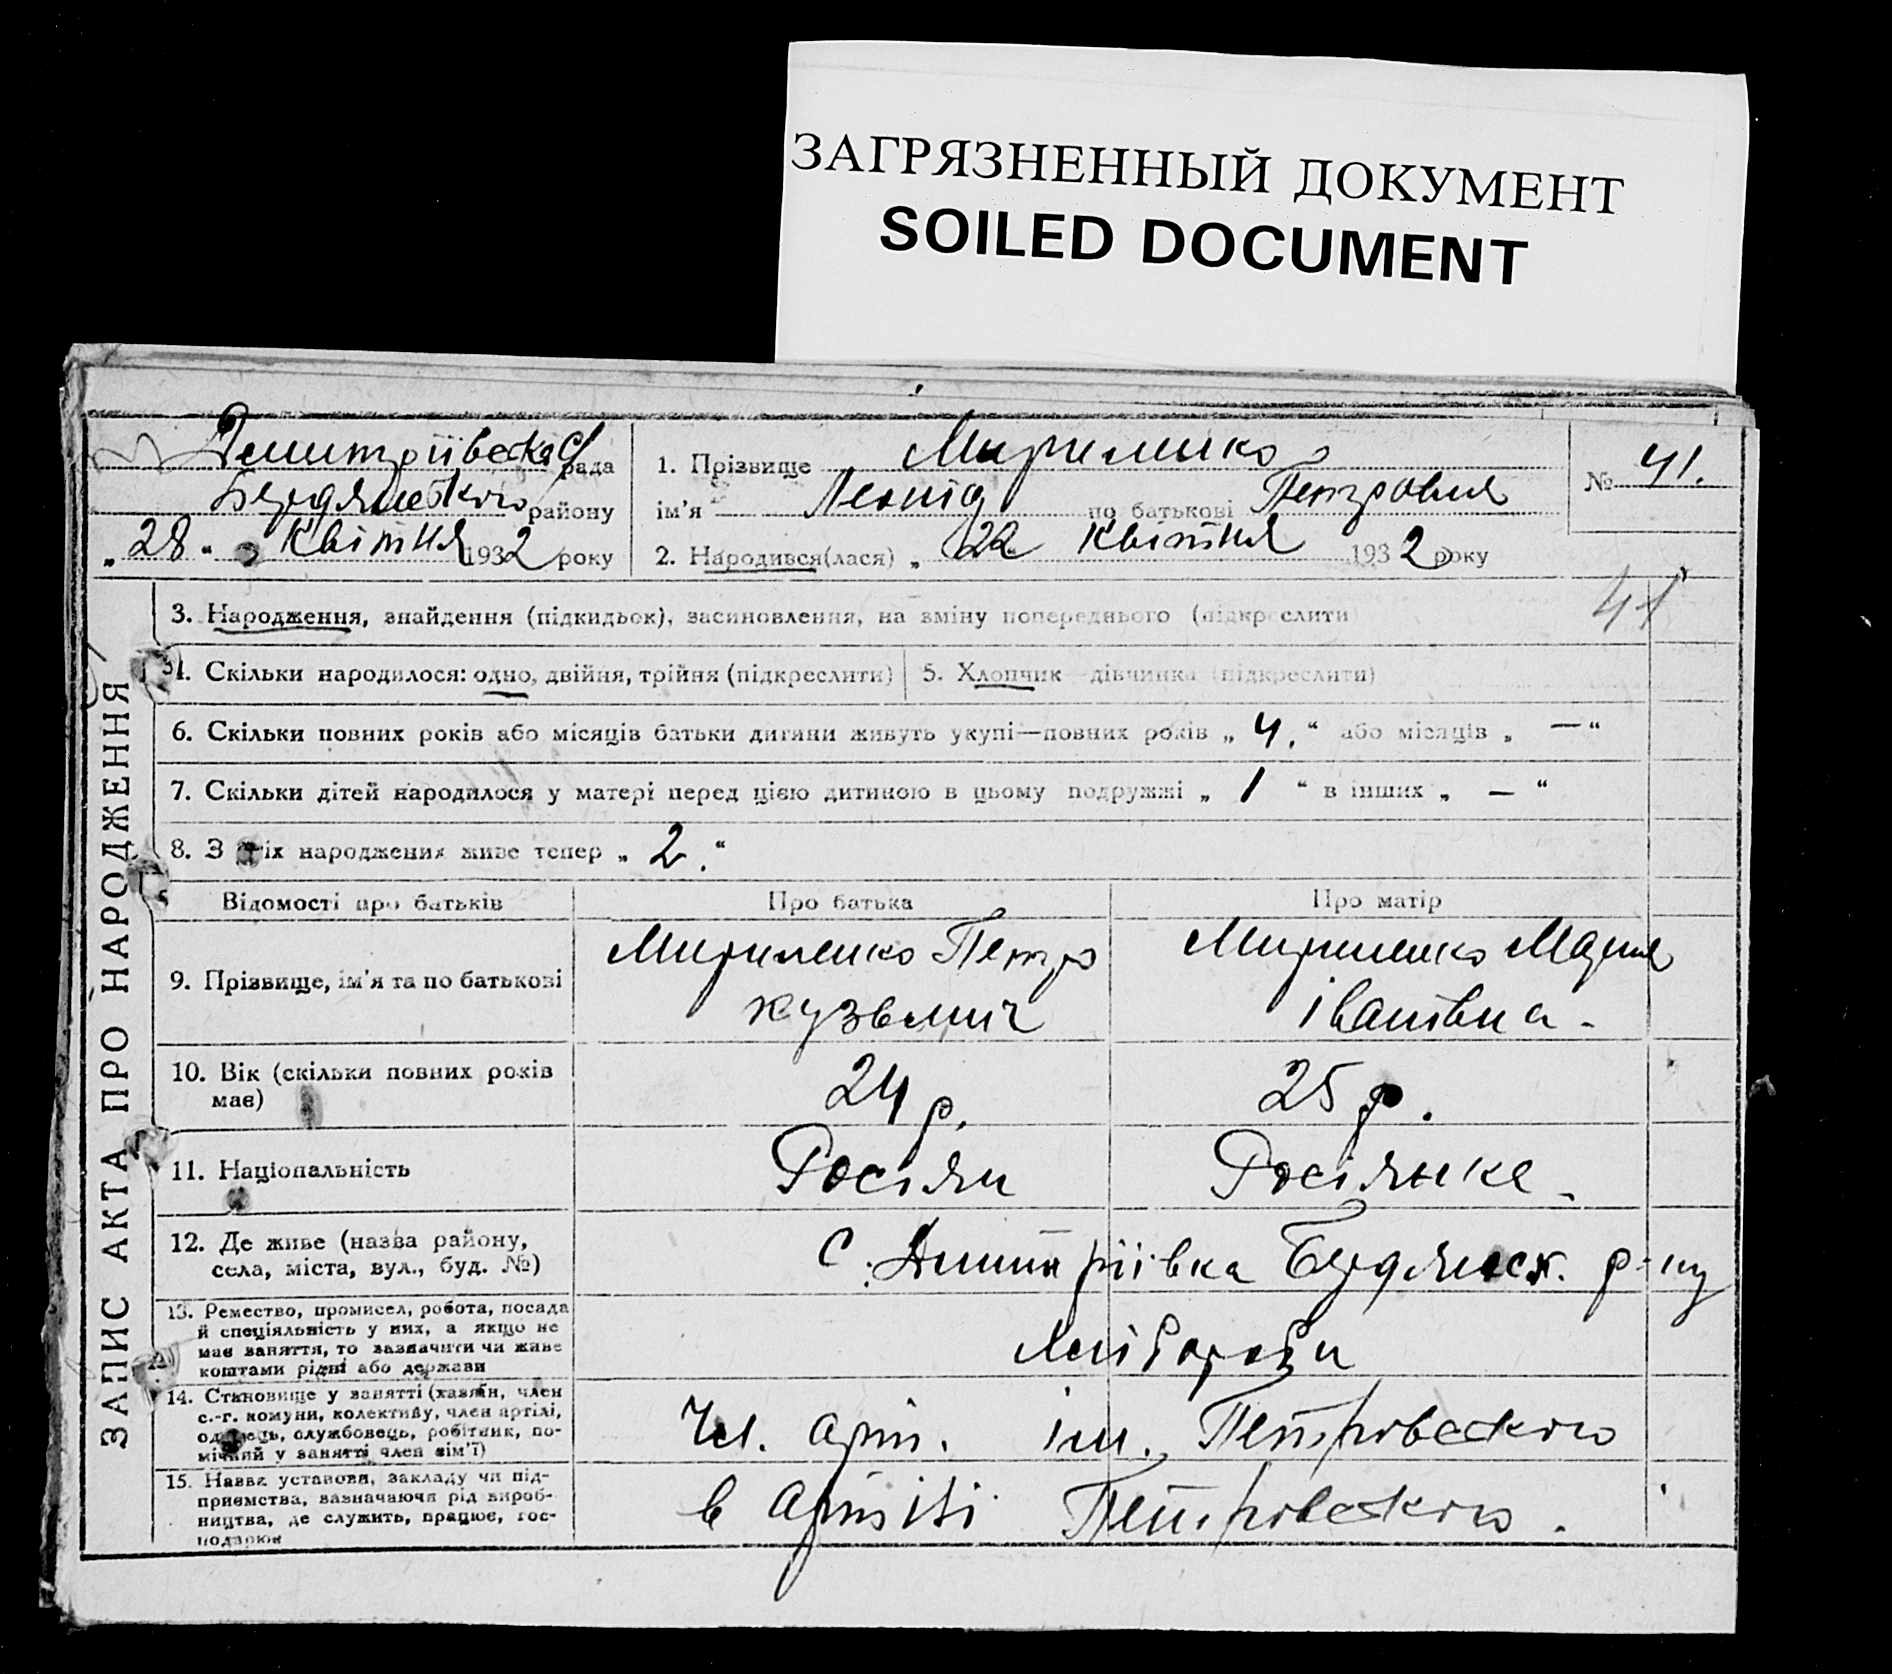 ЗАГРЯЗНЕННЫЙ ДОКУМЕНТ
SOILED DOCUMENT
Дмитріївська рада
Бердянського району
„28“ Квітня 1932 року
1. Прізвище Мириленко
ім'я Леонід по батькові Петрович
2. Народився(лася) „22 Квітня 1932 року
№ 41.
41
ЗАПИС АКТА ПРО НАРОДЖЕННЯ
3. Народження, знайдення (підкидьок), засиновлення, на зміну попереднього (підкреслити
4. Скільки народилося: одно, двійня, трійня (підкреслити)
5. Хлопчик—дівчинка (підкреслити)
6. Скільки повних років або місяців батьки дитини живуть укупі—повних років „4.“ або місяців „—“
7. Скільки дітей народилося у матері перед цією дитиною в цьому подружжі „1“ в інших „—“
8. З усіх народжених живе тепер „2.“
Відомості про батьків
Про батька
Про матір
9. Прізвище, ім'я та по батькові
Мириленко Петро
Кузьмич
Мириленко Марія
Іванівна.
10. Вік (скільки повних років
має)
24 р.
25 р.
11. Національність
Росіян
Росіянка.
12. Де живе (назва району,
села, міста, вул., буд. №)
С. Дмитріївка Бердянск. р-ну
13. Ремество, промисел, робота, посада
й спеціяльність у них, а якщо не
має заняття, то зазначити чи живе
коштами рідні або держави
Хлібороби
14. Становище у занятті (хазяїн, член
с.-г. комуни, колективу, член артілі,
одинець, службовець, робітник, по-
мічний у занятті член сім'ї)
Чл. арт. ім. Петровського
15. Назва установи, закладу чи під-
приємства, зазначаючи рід вироб-
ництва, де служить, працює, гос-
подарює
в Артілі Петровського.